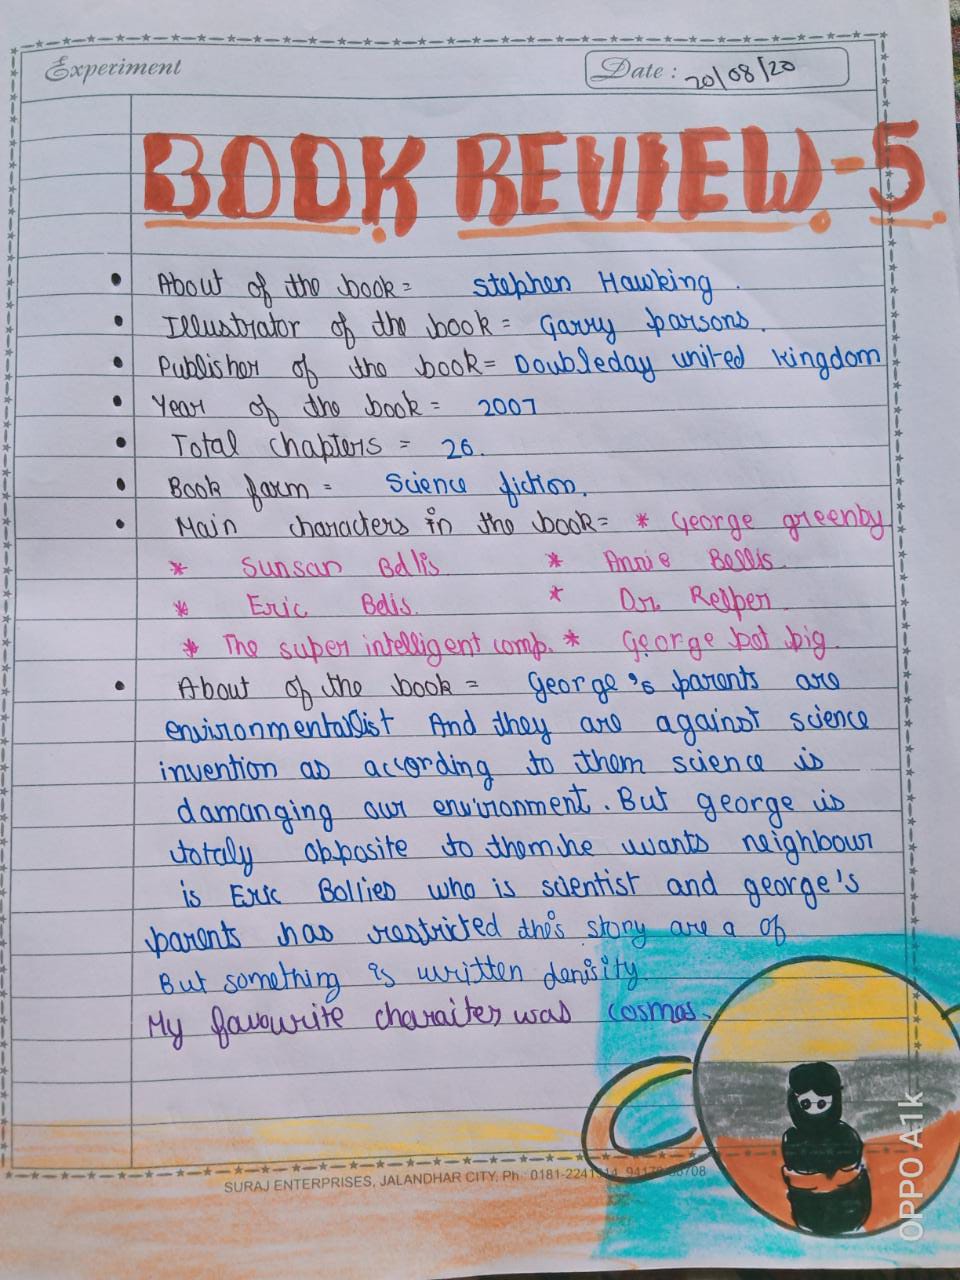 Experiment
Date : 20/08/20
BOOK REVIEW-5
• About of the book = stephen Hawking .
• Illustrator of the book = Garry parsons.
• Publisher of the book = Doubleday united kingdom
• Year of the book = 2007
• Total chapters = 26.
• Book farm = Science fiction.
• Main characters in the book = * George greenby
* Sunsan Bellis * Annie Bellis.
* Eric Belis. * Dr. Relper.
* The super intelligent comp. * George pat pig.
• About of the book = george's parents are
environmentalist And they are against science
invention as according to them science is
damanging our environment. But george is
totaly opposite to them.he wants neighbour
is Eric Bollies who is scientist and george's
parents has restricted this story are a of
But something is written denisity
My favourite charaiter was cosmos.
SURAJ ENTERPRISES, JALANDHAR CITY. Ph : 0181-2241
OPPO A1k